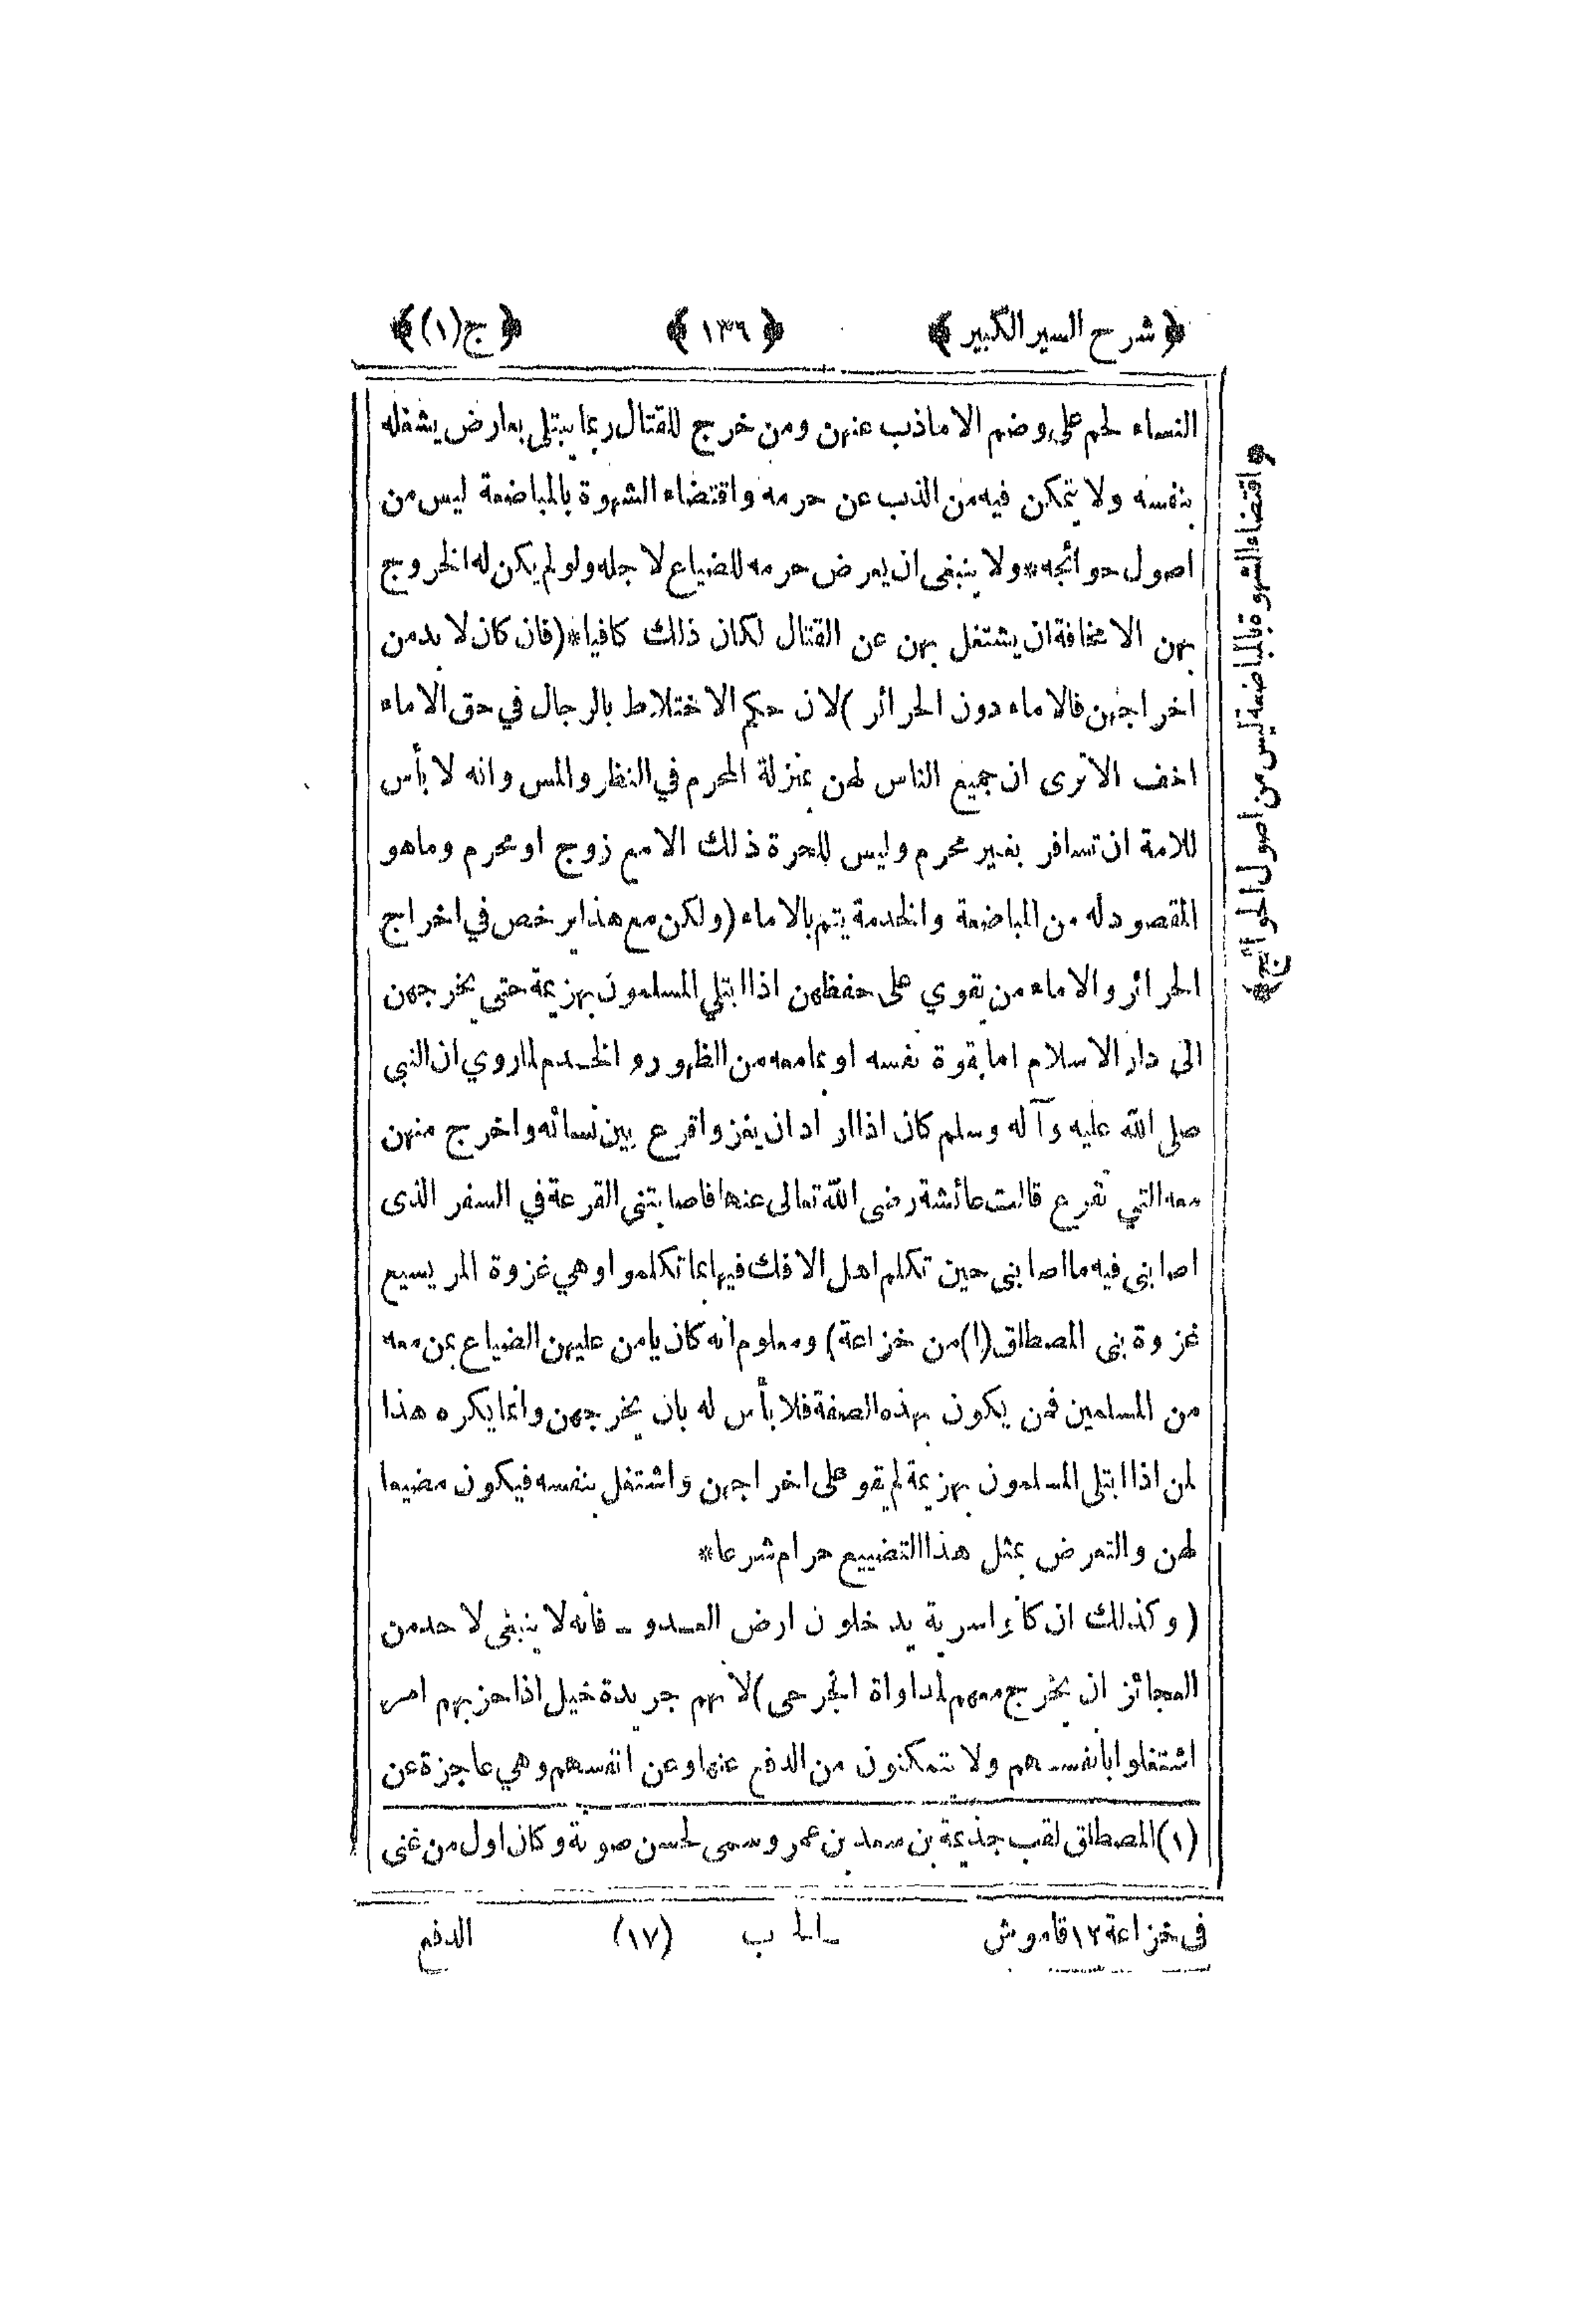 ﴿ شرح السير الكبير ﴾ ﴿ ١٣٦ ﴾ ﴿ ج (١) ﴾
النساء لحم على وضم الا ماذب عنهن ومن خرج للقتال ربما يبتلى بعارض يشغله
بنفسه ولا يتمكن فيه من الذب عن حرمه واقتضاء الشهوة بالمباضعة ليس من
اصول حوائجه * ولا ينبغى ان يعرض حرمه للضياع لاجله ولو لم يكن له الخروج
بهن الا مخافة ان يشتغل بهن عن القتال لكان ذلك كافيا * (فان كان لا بد من
اخراجهن فالاماء دون الحرائر) لان حكم الاختلاط بالرجال في حق الاماء
اخف الا ترى ان جميع الناس لهن بمنزلة المحرم في النظر والمس وانه لا بأس
للامة ان تسافر بغير محرم وليس للحرة ذلك الا مع زوج او محرم وما هو
المقصود له من المباضعة والخدمة يتم بالاماء (ولكن مع هذا يرخص في اخراج
الحرائر والاماء من يقوي على حفظهن اذا ابتلي المسلمون بهزيمة حتى يخرجهن
الى دار الاسلام اما بقوة نفسه او بما معه من الظهور والخدم لما روي ان النبي
صلى الله عليه وآله وسلم كان اذا اراد ان يغزو اقرع بين نسائه واخرج منهن
معه التي تقرع قالت عائشة رضى الله تعالى عنها فاصابتنى القرعة في السفر الذى
اصابنى فيه ما اصابنى حين تكلم اهل الافك فيها بما تكلموا وهي غزوة المريسيع
غزوة بنى المصطلق (١) من خزاعة) ومعلوم انه كان يامن عليهن الضياع بمن معه
من المسلمين فمن يكون بهذه الصفة فلا بأس له بان يخرجهن وانما يكره هذا
لمن اذا ابتلى المسلمون بهزيمة لم يقو على اخراجهن واشتغل بنفسه فيكون مضيعا
لهن والتعرض بمثل هذا التضييع حرام شرعا *
(وكذلك ان كانوا سرية يدخلون ارض العدو ـ فانه لا ينبغى لاحد من
العجائز ان يخرج معهم لمداواة الجرحى) لانهم جريدة خيل اذا حزبهم امر
اشتغلوا بأنفسهم ولا تتمكنون من الدفع عنها وعن انفسهم وهي عاجزة عن
(١) المصطلق لقب جذيمة بن سعد بن عمرو سمى لحسن صوته وكان اول من غنى
فى خزاعة ١٢ قاموش (١٧) الدفع
﴿ واقتضاء الشهوة بالمباضعة ليس من اصول الحوائج ﴾